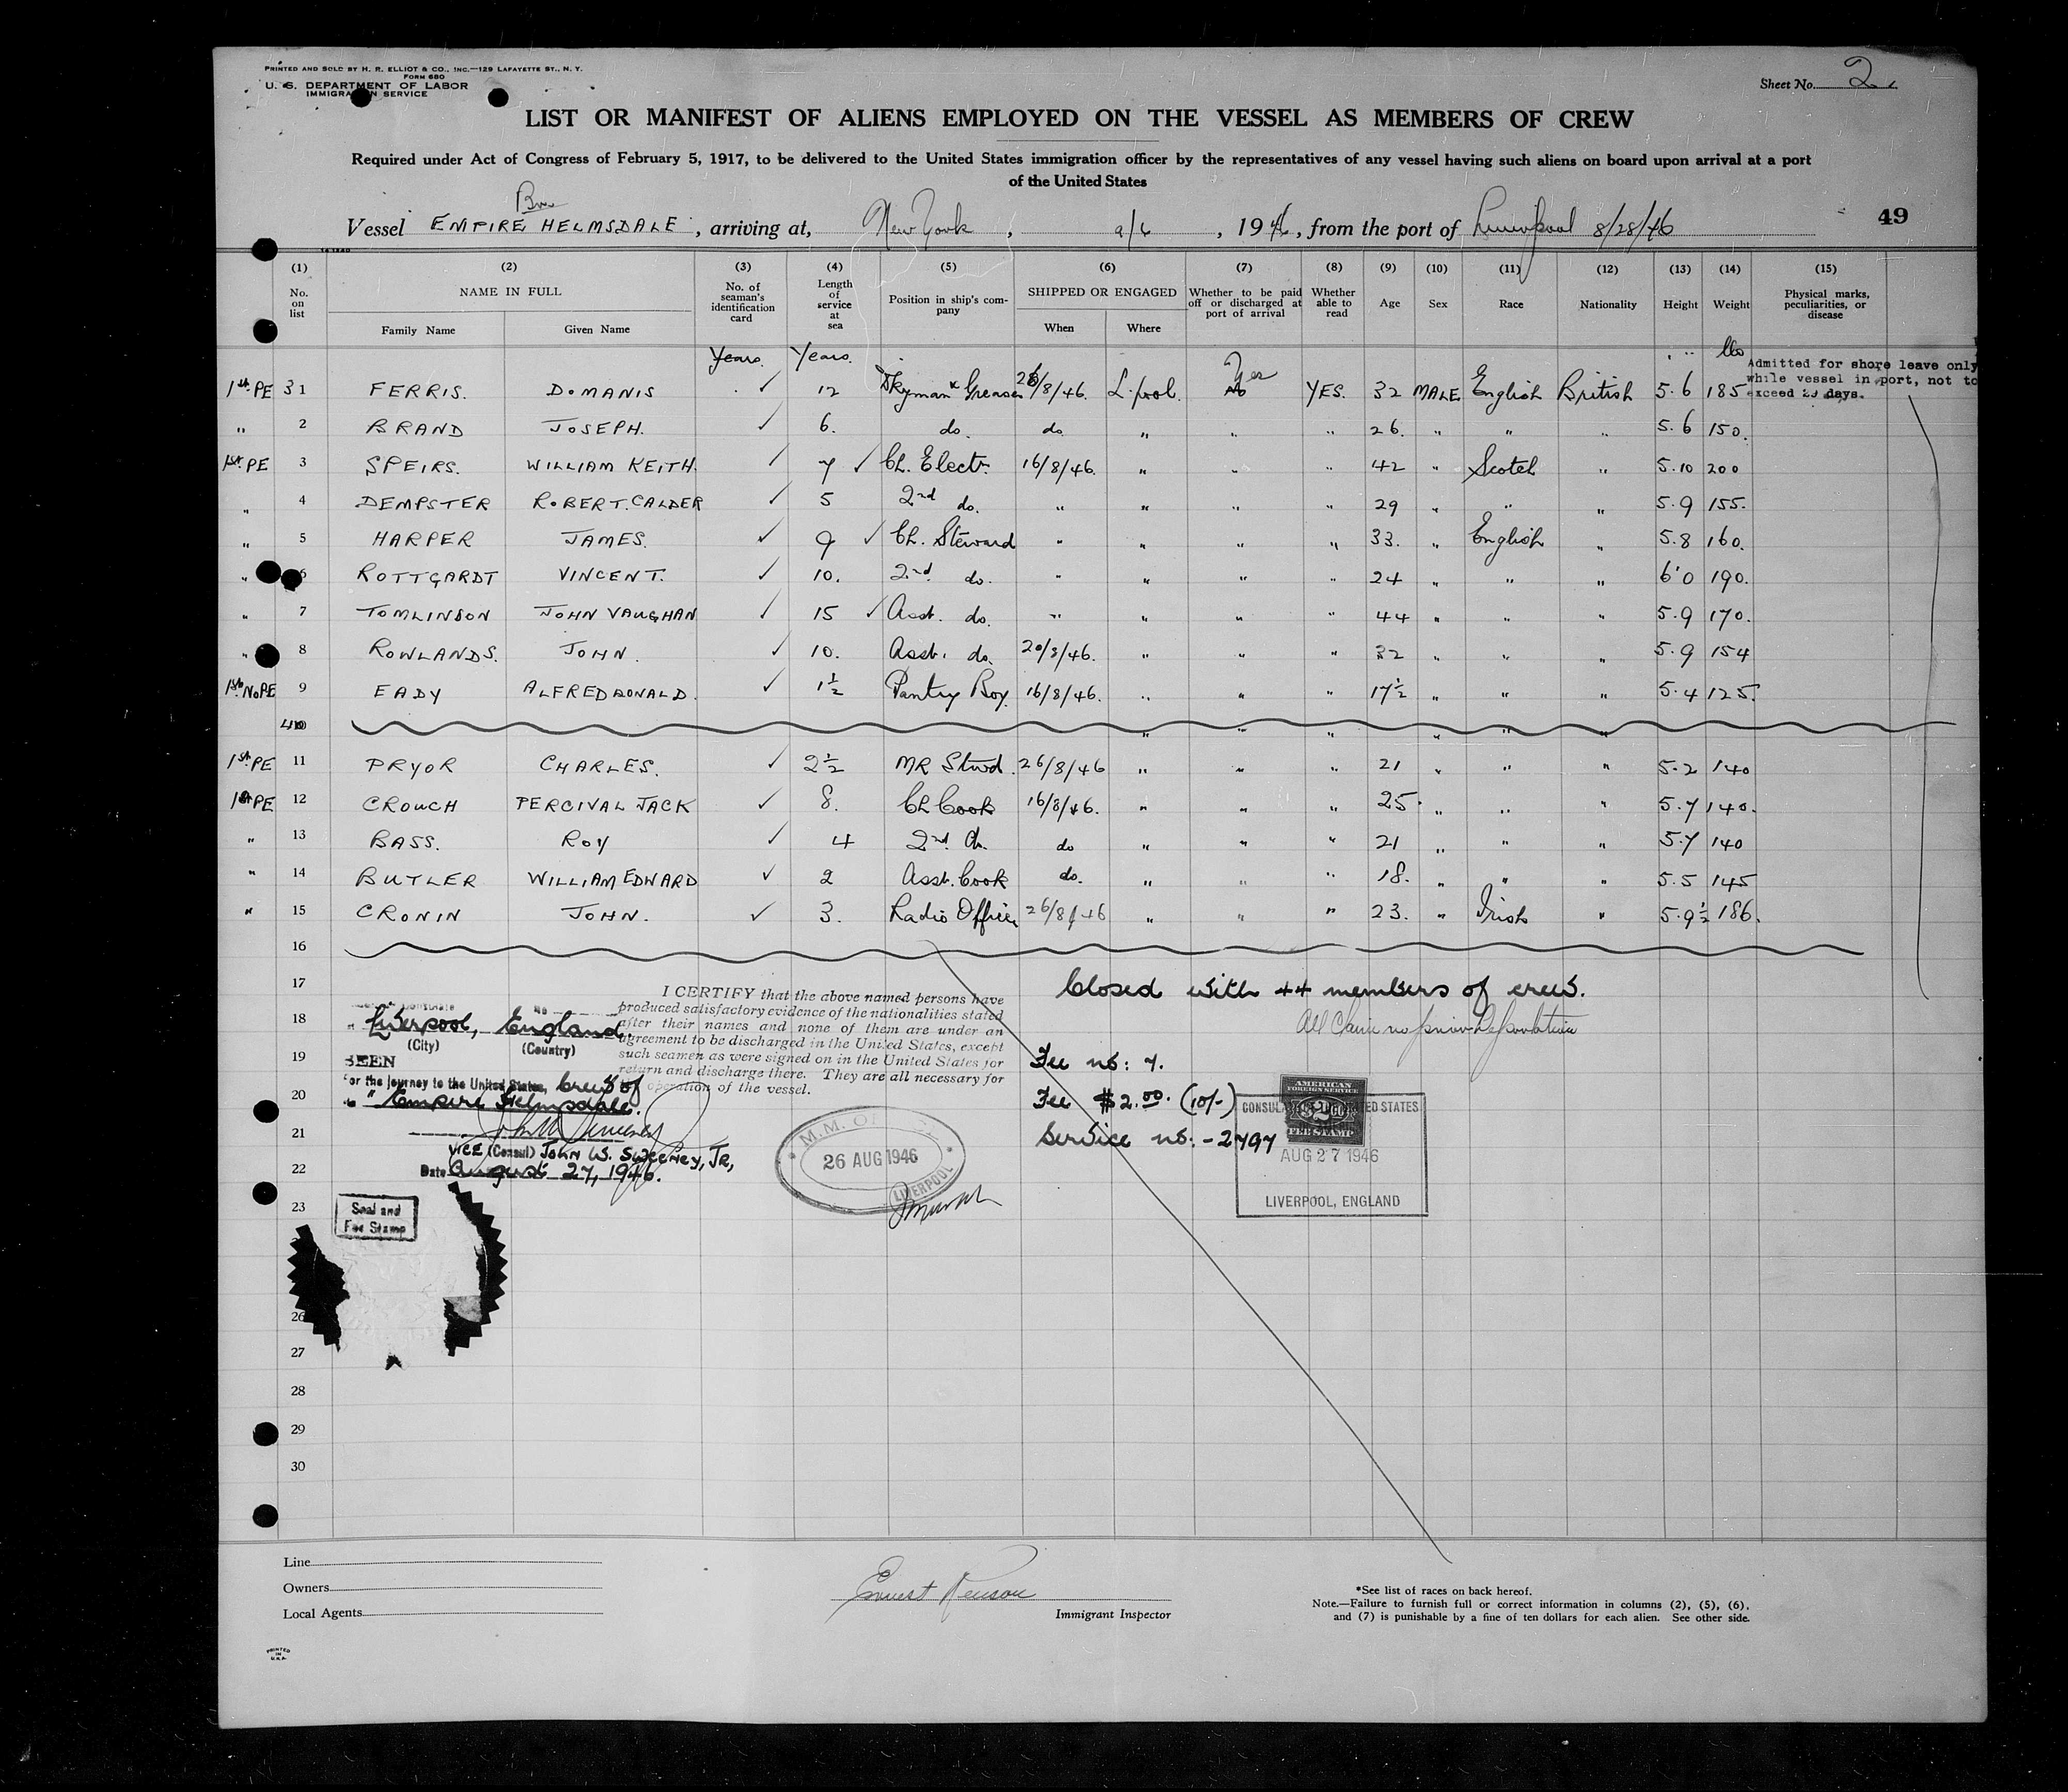 PRINTED AND SOLD BY H. R. ELLIOT & CO., INC.—129 LAFAYETTE ST., N. Y.
FORM 680
U. S. DEPARTMENT OF LABOR
IMMIGRATION SERVICE
Sheet No. 2
LIST OR MANIFEST OF ALIENS EMPLOYED ON THE VESSEL AS MEMBERS OF CREW
Required under Act of Congress of February 5, 1917, to be delivered to the United States immigration officer by the representatives of any vessel having such aliens on board upon arrival at a port
of the United States
Br
Vessel EMPIRE HELMSDALE, arriving at, New York, 9/6, 1946, from the port of Liverpool 8/28/46
49
(1) (2) (3) (4) (5) (6) (7) (8) (9) (10) (11) (12) (13) (14) (15)
No. on list
NAME IN FULL
Family Name
Given Name
No. of seaman's identification card
Length of service at sea
Position in ship's company
SHIPPED OR ENGAGED
When
Where
Whether to be paid off or discharged at port of arrival
Whether able to read
Age
Sex
Race
Nationality
Height
Weight
Physical marks, peculiarities, or disease
Years. Years. lbs
Admitted for shore leave only
while vessel in port, not to
exceed 29 days.
Yes
1st PE 31 FERRIS. DOMANIS ✓ 12 Dkyman & Greaser 26/8/46. L.pool. No YES. 32 MALE English British 5.6 185
" 2 BRAND JOSEPH. ✓ 6. do. do. " " " 26. " " " 5.6 150.
1st PE 3 SPEIRS. WILLIAM KEITH. ✓ 7 ✓ Ch. Electr. 16/8/46. " " " 42 " Scotch " 5.10 200
" 4 DEMPSTER ROBERT. CALDER ✓ 5 2nd do. " " " " 29 " " " 5.9 155.
" 5 HARPER JAMES. ✓ 9 ✓ Ch. Steward " " " " 33. " English " 5.8 160.
" 6 ROTTGARDT VINCENT. ✓ 10. 2nd do. " " " " 24 " " " 6'0 190.
" 7 TOMLINSON JOHN VAUGHAN ✓ 15 ✓ Asst. do. " " " " 44 " " " 5.9 170.
" 8 ROWLANDS. JOHN. ✓ 10. Asst. do. 20/8/46. " " " 32 " " " 5.9 154
1st NoPE 9 EADY ALFRED DONALD. ✓ 1½ Pantry Boy. 16/8/46. " " " 17½ " " " 5.4 125.
40 " " " " " "
1st PE 11 PRYOR CHARLES. ✓ 2½ MR Stwd. 26/8/46 " " " 21 " " " 5.2 140
1st PE 12 CROUCH PERCIVAL JACK ✓ 8. Ch Cook 16/8/46. " " " 25. " " " 5.7 140.
" 13 BASS. ROY ✓ 4 2nd Ck. do " " " 21 " " " 5.7 140
" 14 BUTLER WILLIAM EDWARD ✓ 2 Asst. Cook do. " " " 18. " " " 5.5 145
" 15 CRONIN JOHN. ✓ 3. Radio Officer 26/8/46 " " " 23. " Irish " 5.9½ 186.
16
17 Closed with 44 members of crew.
All Claim no prior Deportation
I CERTIFY that the above named persons have
produced satisfactory evidence of the nationalities stated
after their names and none of them are under an
agreement to be discharged in the United States, except
such seamen as were signed on in the United States for
return and discharge there. They are all necessary for
operation of the vessel.
No
18 Liverpool, England.
(City) (Country)
19 SEEN
for the journey to the United States, Crew of
20 "Empire Helmsdale."
21
Vice (Consul) JOHN W. SWEENEY, JR,
22 Date August 27, 1946.
Fee no: 7.
Fee $2.00. (10/-)
Service no: -2797
M.M. OFFICE
26 AUG 1946
LIVERPOOL
AMERICAN
FOREIGN SERVICE
$2.00
FEE STAMP
CONSULATE OF THE UNITED STATES
AUG 27 1946
LIVERPOOL, ENGLAND
23
Seal and
Fee Stamp
26
27
28
29
30
Line
Owners
Local Agents
Ernest Henson
Immigrant Inspector
*See list of races on back hereof.
Note.—Failure to furnish full or correct information in columns (2), (5), (6),
and (7) is punishable by a fine of ten dollars for each alien. See other side.
PRINTED
IN
U.S.A.